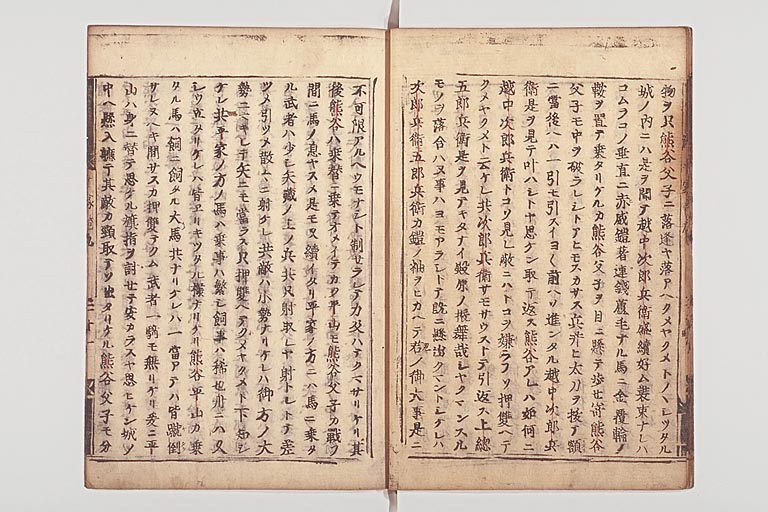 物ヲ只熊谷父子ニ落逢ヤ落アヘクメヤクメトノヽシツタル
城ノ内ニハ是ヲ聞テ越中次郎兵衛盛續好ム装束ナレハ
コムラコノ垂直ニ赤威鎧著連銭蘆毛ナル馬ニ金覆輪ノ
鞍ヲ置テ乗タリケルカ熊谷父子ヲ目ニ懸テ歩セ寄熊谷
父子モ中ヲ破ラレシトアヒモスカサス立并ヒ太刀ヲ按テ額
ニ當後ヘハ一引モ引スイヨ〱前ヘソ進ンタル越中次郎兵
衛是ヲ見テ叶ハシトヤ思ケン取テ返ス熊谷アレハ如何ニ
越中次郎兵衛トコソ見レ敵ニハトコヲ嫌ラフソ押雙ヘテ
クメヤクメト云ケレ共次郎兵衛サモサウストテ引返ス上總
五郎兵衛是ヲ見テキタナイ殿原ノ振舞哉シヤクマンスル
モノヲ落合ハヌ事ハヨモアラシトテ既ニ懸出クマントシケレハ
次郎兵衛五郎兵衛カ鎧ノ袖ヲヒカヘテ君ノ御大事是
ニ不可限アルヘウモナシト制セラレテ力及ハテクマサリケリ其
後熊谷ハ乗替ニ乗テオメイテカク平山モ熊谷父子カ戰フ
間ニ馬ノ息ヤスメ是モ又續イタリ平家ノ方ニハ馬ニ乗タ
ル武者ハ少シ矢藏ノ上ノ兵共只射取レヤ射トレトテ差
ツメ引ツメ散ニ射ケレ共敵ハ小勢ナリケレハ御方ノ大
勢ニマキレテ矢ニモ當ラス只押雙ヘテクメヤクメト下知シ
ケレ共平家ノ方ノ馬ハ乗事ハ繁シ飼事ハ稀也舟ニハ又
シウ立タリケレハ皆ヱリキツタル様ナリケリ熊谷平山カ乗
タル馬ハ飼ニ飼タル大馬共ナリケレハ一當アテハ皆蹴倒
サレヌヘキ間サスカ押雙テクム武者一騎モ無リケリ爰ニ平
山ハ身ニ替テ思ケル旗指ヲ討セテ安カラスヤ思ヒケン城ノ
中ヘ懸入軈テ其敵カ頸取テソ出タリケル熊谷父子モ分